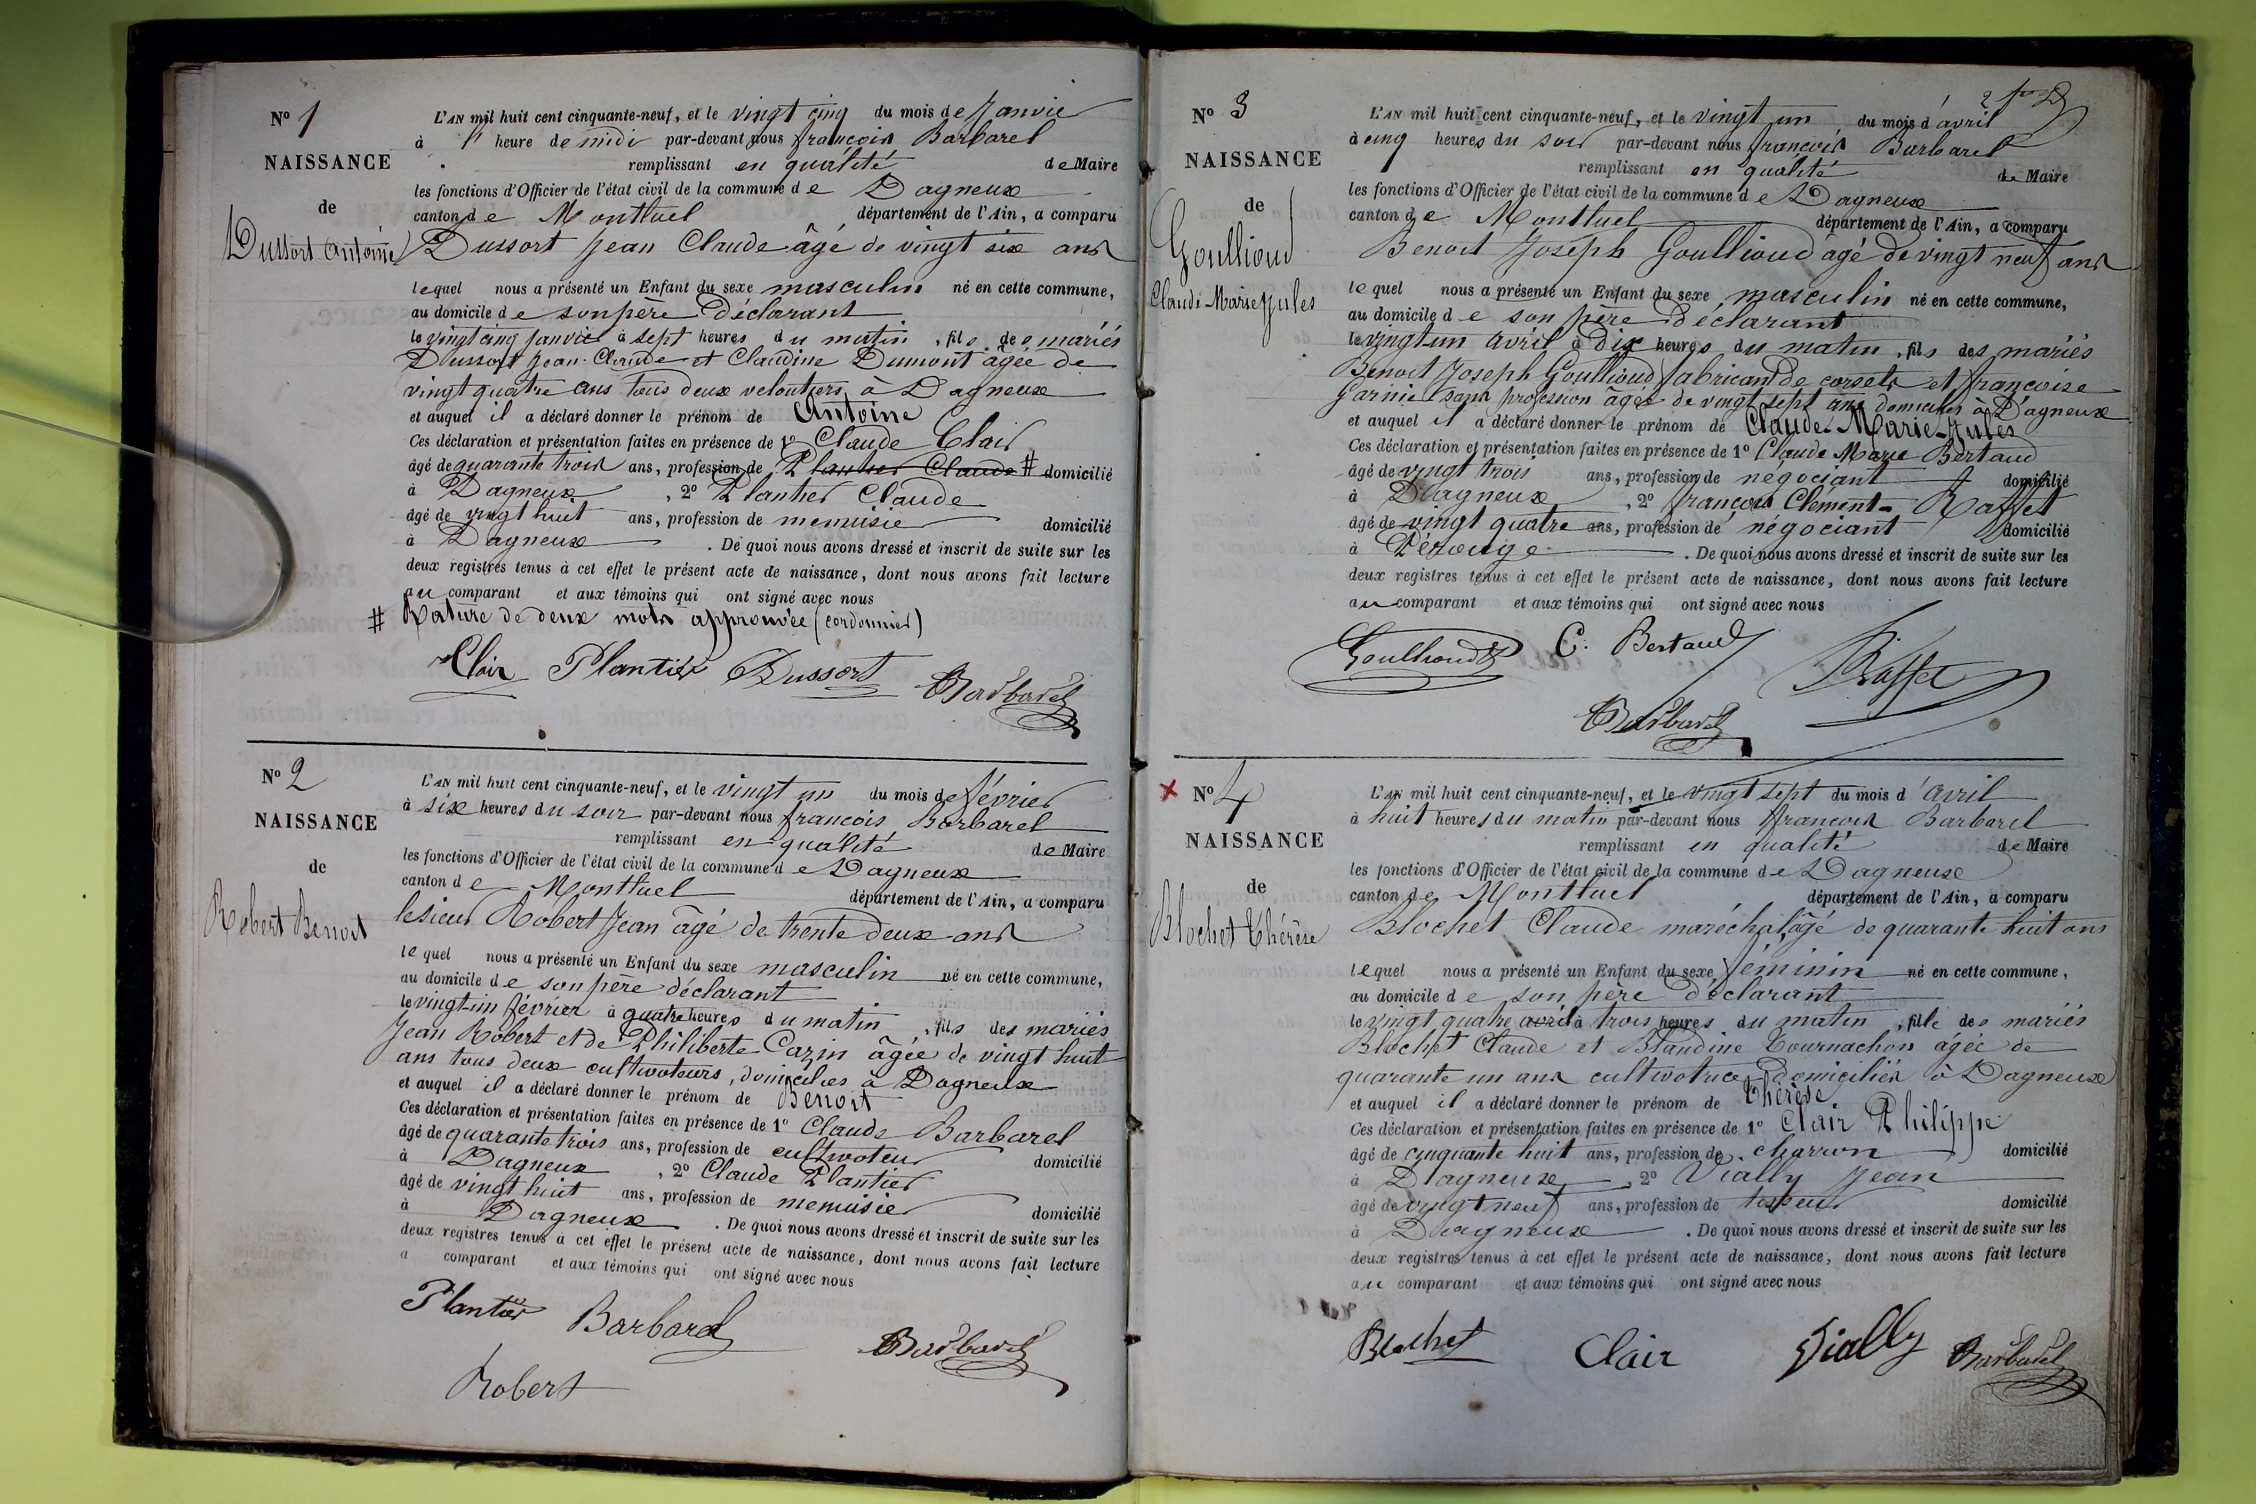 N° 1
NAISSANCE
de
Dussort Antoine
L'AN mil huit cent cinquante-neuf, et le vingt cinq du mois de Janvier
à 1 heure de midi par-devant nous françois Barbarel
remplissant en qualité de Maire
les fonctions d'Officier de l'état civil de la commune de Dagneux
canton de Montluel département de l'Ain, a comparu
Dussort Jean Claude âgé de vingt six ans
lequel nous a présenté un Enfant du sexe masculin né en cette commune,
au domicile de son père Déclarant
le vingt cinq janvier à sept heures du matin, fils des mariés
Dussort Jean-Claude et Claudine Dumont âgée de
vingt quatre ans tous deux veloutiers à Dagneux
et auquel il a déclaré donner le prénom de Antoine
Ces déclaration et présentation faites en présence de 1° Claude Clair
âgé de quarante trois ans, profession de Plantier Claude # domicilié
à Dagneux, 2° Plantier Claude
âgé de vingt huit ans, profession de menuisier domicilié
à Dagneux. De quoi nous avons dressé et inscrit de suite sur les
deux registres tenus à cet effet le présent acte de naissance, dont nous avons fait lecture
au comparant et aux témoins qui ont signé avec nous
# Rature de deux mots approuvée (cordonnier)
Clair Plantier Dussort Barbarel
N° 2
NAISSANCE
de
Robert Benoit
L'AN mil huit cent cinquante-neuf, et le vingt un du mois de février
à six heures du soir par-devant nous françois Barbarel
remplissant en qualité de Maire
les fonctions d'Officier de l'état civil de la commune de Dagneux
canton de Montluel département de l'Ain, a comparu
le sieur Robert Jean âgé de trente deux ans
lequel nous a présenté un Enfant du sexe masculin né en cette commune,
au domicile de son père déclarant
le vingt-un février à quatre heures du matin, fils des mariés
Jean Robert et de Philiberte Cazin âgée de vingt huit
ans tous deux cultivateurs, domiciliés à Dagneux
et auquel il a déclaré donner le prénom de Benoit
Ces déclaration et présentation faites en présence de 1° Claude Barbarel
âgé de quarante trois ans, profession de cultivateur domicilié
à Dagneux, 2° Claude Plantier
âgé de vingt huit ans, profession de menuisier domicilié
à Dagneux. De quoi nous avons dressé et inscrit de suite sur les
deux registres tenus à cet effet le présent acte de naissance, dont nous avons fait lecture
a comparant et aux témoins qui ont signé avec nous
Plantier Barbarel Barbarel
Robert
2
N° 3
NAISSANCE
de
Goullioud
Claude-Marie-Jules
L'AN mil huit cent cinquante-neuf, et le vingt un du mois d'avril
à cinq heures du soir par-devant nous françois Barbarel
remplissant en qualité de Maire
les fonctions d'Officier de l'état civil de la commune de Dagneux
canton de Montluel département de l'Ain, a comparu
Benoit Joseph Goullioud âgé de vingt neuf ans
lequel nous a présenté un Enfant du sexe masculin né en cette commune,
au domicile de son père Déclarant
le vingt un avril à dix heures du matin, fils des mariés
Benoit Joseph Goullioud fabricant de corsets et françoise
Garnier sans profession âgée de vingt sept ans domiciliés à Dagneux
et auquel il a déclaré donner le prénom de Claude-Marie-Jules
Ces déclaration et présentation faites en présence de 1° Claude Marie Bertaud
âgé de vingt trois ans, profession de négociant domicilié
à Dagneux, 2° françois Clément-Raffet
âgé de vingt quatre ans, profession de négociant domicilié
à Pérouge. De quoi nous avons dressé et inscrit de suite sur les
deux registres tenus à cet effet le présent acte de naissance, dont nous avons fait lecture
au comparant et aux témoins qui ont signé avec nous
Goullioud C. Bertaud Raffet
Barbarel
N° 4
NAISSANCE
de
Blochet Thérèse
L'AN mil huit cent cinquante-neuf, et le vingt sept du mois d'avril
à huit heures du matin par-devant nous françois Barbarel
remplissant en qualité de Maire
les fonctions d'Officier de l'état civil de la commune de Dagneux
canton de Montluel département de l'Ain, a comparu
Blochet Claude maréchal âgé de quarante huit ans
lequel nous a présenté un Enfant du sexe féminin né en cette commune,
au domicile de son père déclarant
le vingt quatre avril à trois heures du matin, fille des mariés
Blochet Claude et Blandine Tournachon âgée de
quarante un ans cultivatrice domiciliés à Dagneux
et auquel il a déclaré donner le prénom de Thérèse
Ces déclaration et présentation faites en présence de 1° Clair Philippe
âgé de cinquante huit ans, profession de charron domicilié
à Dagneux, 2° Vially Jean
âgé de vingt neuf ans, profession de domicilié
à Dagneux. De quoi nous avons dressé et inscrit de suite sur les
deux registres tenus à cet effet le présent acte de naissance, dont nous avons fait lecture
au comparant et aux témoins qui ont signé avec nous
Blochet Clair Vially Barbarel